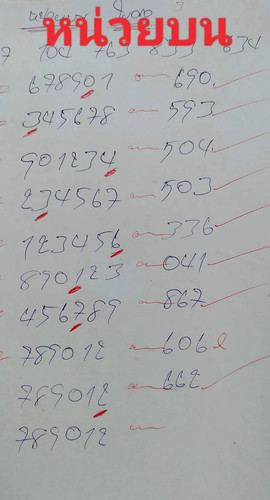 หน่วยบน
7 104 763 833 834
678901 690
345678 593
901234 504
234567 503
123456 336
890123 041
456789 867
789012 606
789012 662
789012